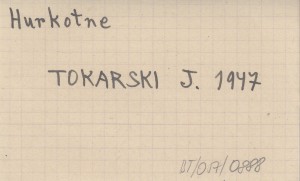 Hurkotne
TOKARSKI J. 1947
BT/057/0888